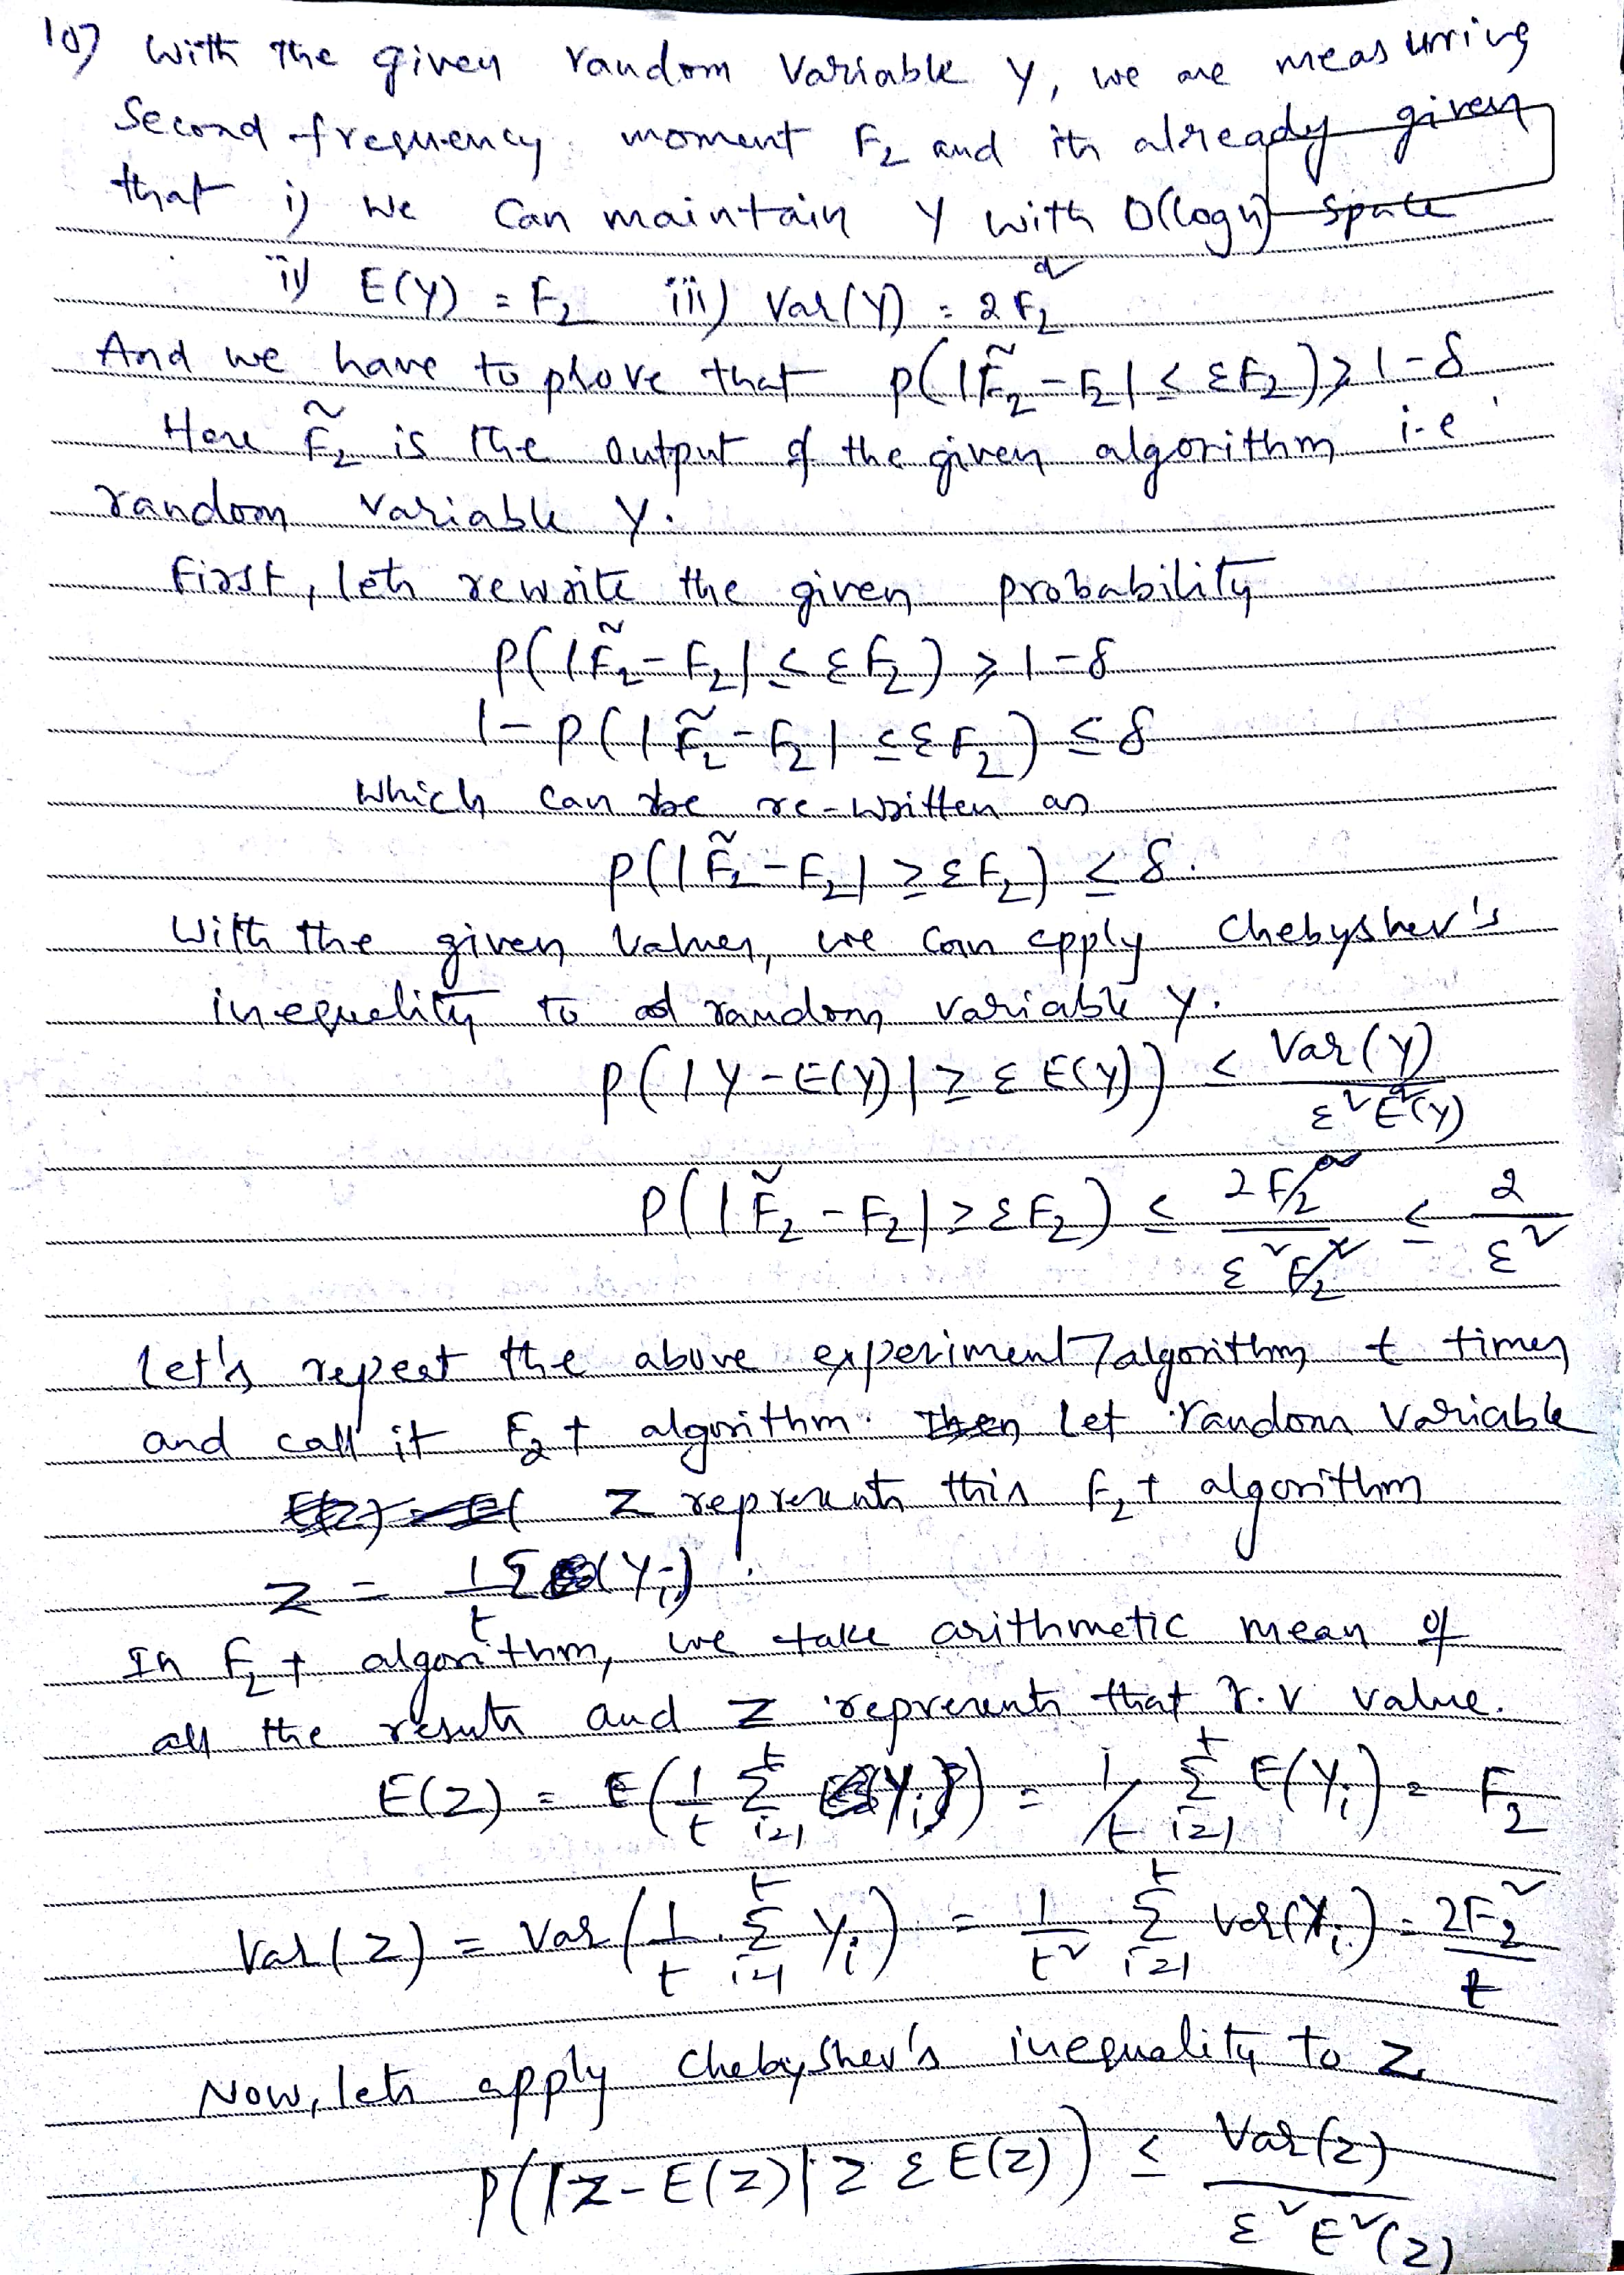 10) With the given random variable Y, we are measurring
Second frequency moment F₂ and its already given
that i) we can maintain Y with O(log n) space
ii) E(Y) = F₂ iii) Var(Y) = 2F₂²
And we have to prove that P(|F̃₂ - F₂| ≤ εF₂) ≥ 1-δ
Here F̃₂ is the output of the given algorithm i-e
random variable Y.
First, lets rewrite the given probability
P(|F̃₂ - F₂| ≤ εF₂) ≥ 1-δ
1 - P(|F̃₂ - F₂| ≤ εF₂) ≤ δ
which can be re-written as
P(|F̃₂ - F₂| ≥ εF₂) ≤ δ.
With the given values, we can apply Chebyshev's
inequality to random variable Y.
P(|Y - E(Y)| ≥ ε E(Y)) ≤ Var(Y) / ε²E²(Y)
P(|F̃₂ - F₂| ≥ εF₂) ≤ 2F₂² / ε²F₂² ≤ 2 / ε²
Let's repeat the above experiment/algorithm t times
and call it F₂t algorithm. Let random variable
Z represents this F₂t algorithm
Z = 1/t Σ(Yᵢ)
In F₂t algorithm, we take arithmetic mean of
all the results and Z represents that r.v value.
E(Z) = E(1/t Σᵢ₌₁ᵗ Yᵢ) = 1/t Σᵢ₌₁ᵗ E(Yᵢ) = F₂
Var(Z) = Var(1/t . Σᵢ₌₁ᵗ Yᵢ) = 1/t² Σᵢ₌₁ᵗ Var(Yᵢ) = 2F₂² / t
Now, lets apply Chebyshev's inequality to Z
P(|Z - E(Z)| ≥ ε E(Z)) ≤ Var(Z) / ε²E²(Z)